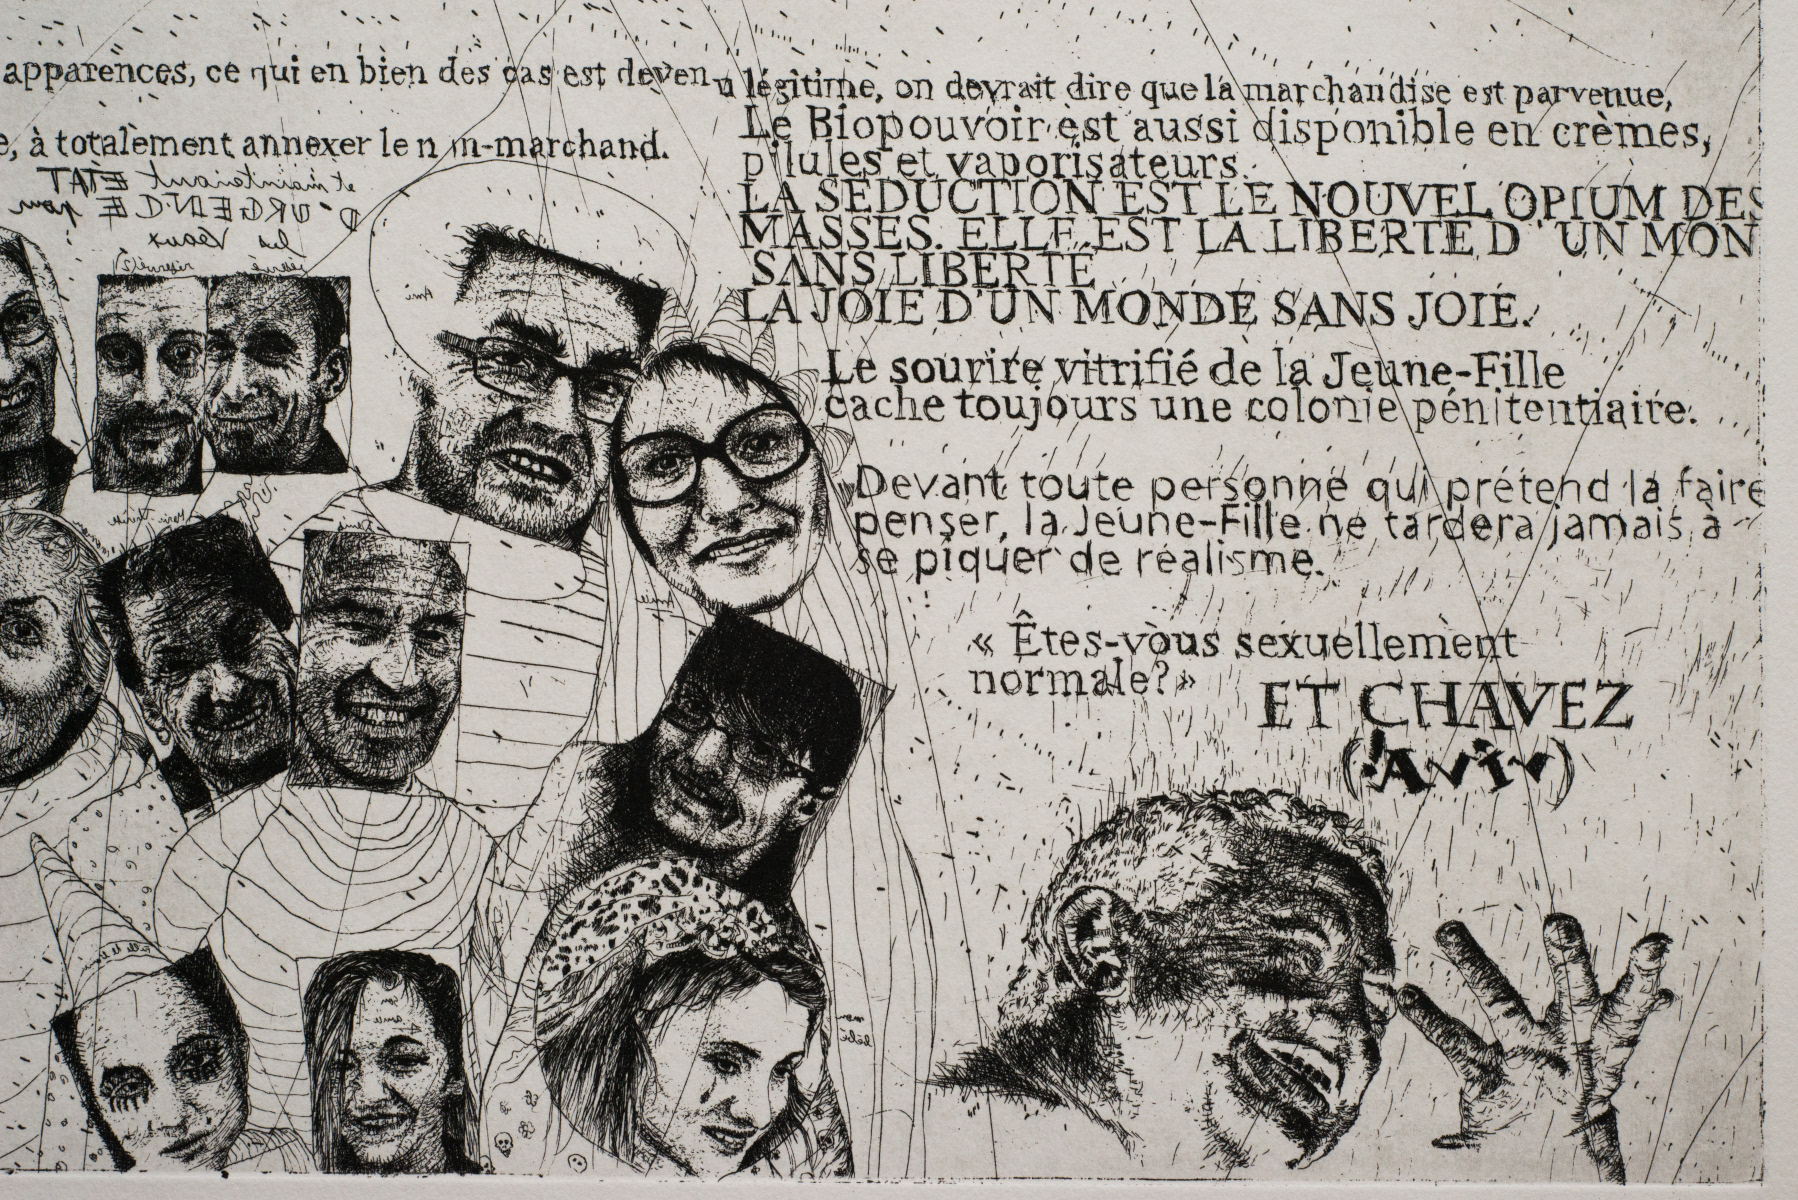 apparences, ce qui en bien des cas est devenu légitime, on devrait dire que la marchandise est parvenue,
e, à totalement annexer le n n-marchand.
et maintenant ETAT
D'URGENCE pour
les Veaux
Le Biopouvoir est aussi disponible en crèmes,
pilules et vaporisateurs.
LA SEDUCTION EST LE NOUVEL OPIUM DES
MASSES. ELLE EST LA LIBERTE D'UN MON
SANS LIBERTE
LA JOIE D'UN MONDE SANS JOIE.
Le sourire vitrifié de la Jeune-Fille
cache toujours une colonie pénitentiaire.
Devant toute personne qui prétend la faire
penser, la Jeune-Fille ne tardera jamais à
se piquer de réalisme.
« Êtes-vous sexuellement
normale? »
ET CHAVEZ
Marie Thérèse
mon
bébé